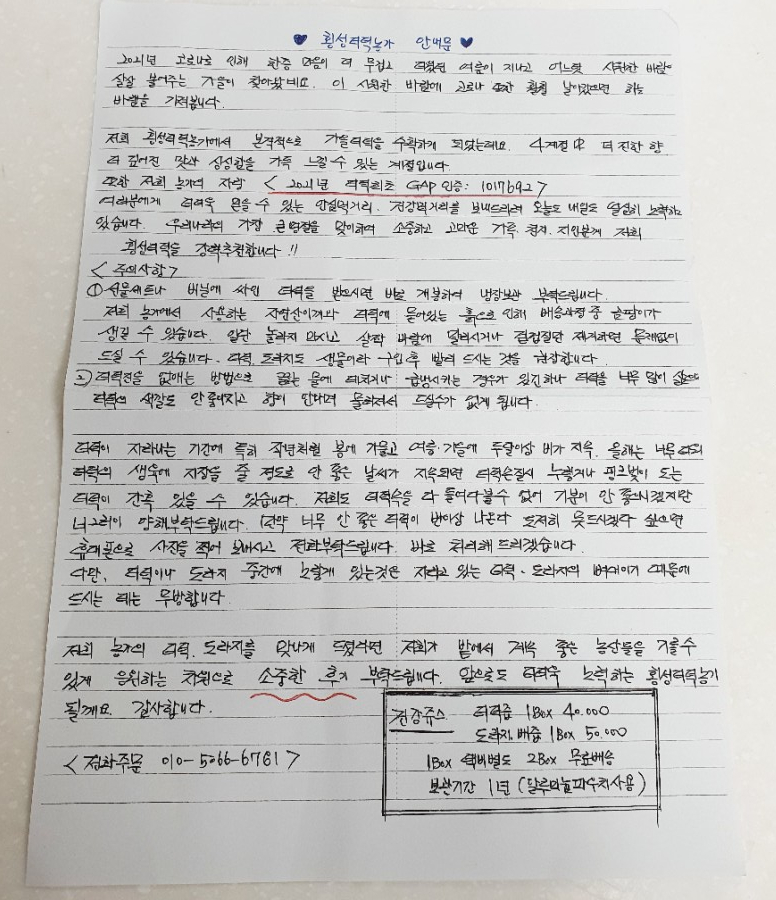 ♥ 횡성더덕농가 안내문 ♥
2021년 코로나로 인해 한층 마음이 더 무겁고 더웠던 여름이 지나고 어느덧 시원한 바람이
살살 불어주는 가을이 찾아왔네요. 이 시원한 바람에 코로나 또한 훨훨 날아갔으면 하는
바램을 가져봅니다.
저희 횡성더덕농가에서 본격적으로 가을더덕을 수확하게 되었는데요. 4계절 中 더 진한 향
더 깊어진 맛과 싱싱함을 가득 느낄 수 있는 계절입니다.
또한 저희 농가의 자랑 < 2021년 더덕최초 GAP 인증: 1017692 >
여러분에게 더더욱 믿을 수 있는 안심먹거리. 건강먹거리를 보내드리려 오늘도 내일도 열심히 노력하고
있습니다. 우리나라의 가장 큰 명절을 맞이하여 소중하고 고마운 가족. 친지. 지인분께 저희
횡성더덕을 강력추천합니다 !!
< 주의사항 >
① 선물세트나 비닐에 싸인 더덕을 받으시면 바로 개봉하여 냉장보관 부탁드립니다.
저희 농가에서 사용하는 자연산이끼와 더덕에 묻어있는 흙으로 인해 배송과정 중 곰팡이가
생길 수 있습니다. 일단 놀라지 마시고 살짝 바람에 말리시거나 겉껍질만 제거하면 문제없이
드실 수 있습니다. 더덕. 도라지도 생물이라 구입 후 빨리 드시는 것을 권장합니다.
② 더덕진을 없애는 방법으로 끓는 물에 데치거나 급냉시키는 경우가 있긴하나 더덕을 너무 많이 삶으면
더덕의 색깔도 안 좋아지고 향이 안나며 물러져서 드실수가 없게 됩니다.
더덕이 자라나는 기간에 특히 작년처럼 봄에 가물고 여름.가을에 두달이상 비가 지속. 올해는 너무 더워
더덕의 생육에 지장을 줄 정도로 안 좋은 날씨가 지속되면 더덕손질시 누렇거나 핑크빛이 도는
더덕이 간혹 있을 수 있습니다. 저희도 더덕속을 다 들여다볼수 없어 기분이 안 좋으시겠지만
너그러이 양해부탁드립니다. 만약 너무 안 좋은 더덕이 반이상 나온다 도저히 못드시겠다 싶으면
휴대폰으로 사진을 찍어 보내시고 전화부탁드립니다. 바로 처리해 드리겠습니다.
다만, 더덕이나 도라지 중간에 노랗게 있는것은 자라고 있는 더덕. 도라지의 뼈대이기 때문에
드시는 데는 무방합니다.
저희 농가의 더덕. 도라지를 맛나게 드셨다면 저희가 밭에서 계속 좋은 농산물을 기를수
있게 응원하는 차원으로 소중한 후기 부탁드립니다. 앞으로도 더더욱 노력하는 횡성더덕농가
될게요. 감사합니다.
< 전화주문 010-5066-6781 >
건강쥬스 더덕즙 1Box 40.000
도라지.배즙 1Box 50.000
1Box 택배별도 2Box 무료배송
보관기간 1년 (알루미늄파우치사용)